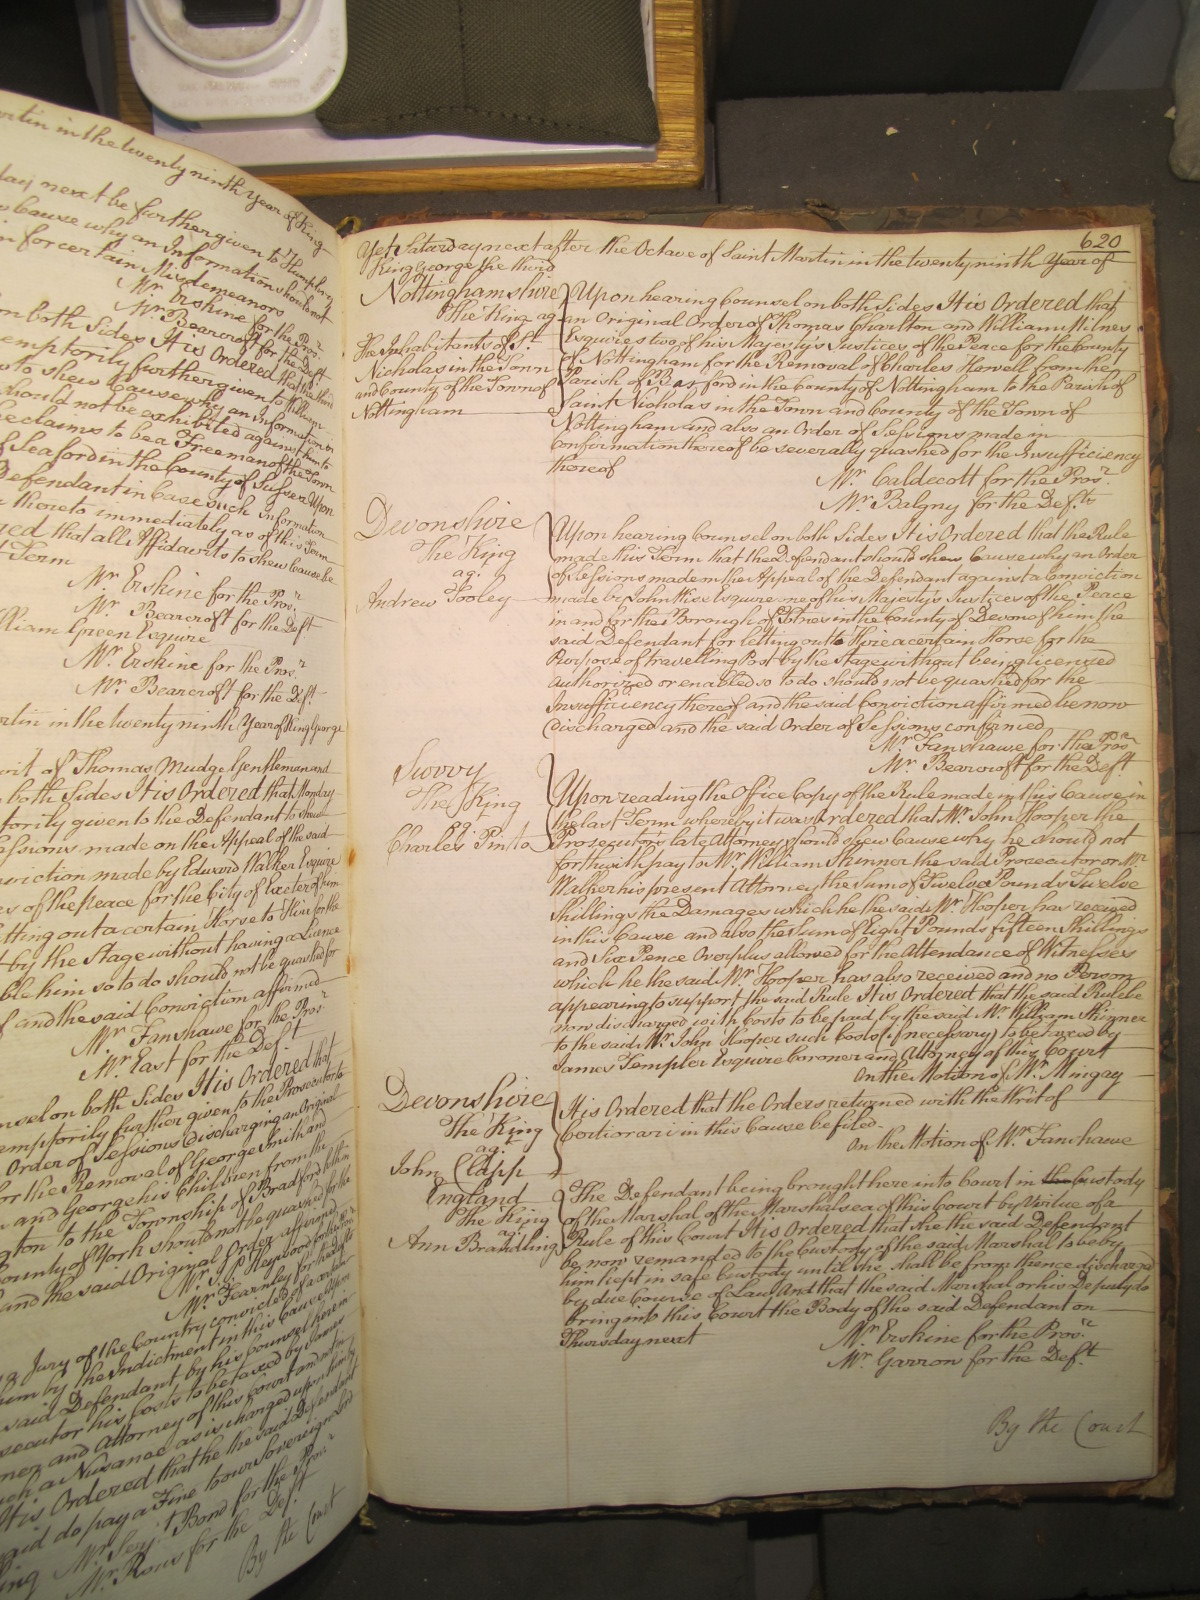 rtin in the twenty ninth Year of King
day next be further given to Humphry
w Cause why an Information should not
for certain Misdemeanors
Mr. Erskine for the Pros.r
Mr. Bearcroft for the Deft
on both Sides It is Ordered that
emptorily further given to William
to shew Cause why an Information
should not be exhibited against him to
claims to be a Freeman of the Town
of Seaford in the County of Sussex Upon
Defendant in Case such Information
thereto immediately as of this Term
red that all Affidavits to shew Cause be
Term
Mr. Erskine for the Pros.r
Mr. Bearcroft for the Deft
lliam Green Esquire
Mr. Erskine for the Pros.r
Mr. Bearcroft for the Deft.
rtin in the twenty ninth Year of King George
of Thomas Mudge Gentleman and
both Sides It is Ordered that Monday
torily given to the Defendant to shew
essions made on the Appeal of the said
viction made by Edward Walker Esquire
es of the peace for the City of Exeter of him
tting out a certain Horse to Hire for the
by the Stage without having a Licence
ble him so to do should not be quashed for
and the said Conviction affirmed
Mr. Fanshawe for the Pros.r
Mr. East for the Def.t
nsel on both Sides It is Ordered that
emptorily further given to the Prosecutor to
Order of Sessions discharging an Original
for the Removal of George Smith and
and George his Children from the
gton to the Township of Bradford
County of York should not be quashed for the
and the said Original Order affirmed
Mr. Heywood for the
Mr. Fearnley for the
a Jury of the Country convicted of a certain
him by the Indictment in this Cause Upon
said Defendant, by his Counsel herein
secutor his Costs to be taxed by James
ner and Attorney of this Court and not
such a Nusance as is charged upon him by
It is Ordered that he the said Defendant
aid do pay a Fine to our Sovereign Lord
ing Mr. Serj.t Bond for the Pros.r
Mr. Rous for the Def.t
By the Court
620
Yet Saturday next after the Octave of Saint Martin in the twenty ninth Year of
King George the third
Nottinghamshire
The King ag.
The Inhabitants of St.
Nicholas in the Town
and County of the Town of
Nottingham
Upon hearing Counsel on both Sides It is Ordered that
an Original Order of Thomas Charlton and William Milnes
Esquires two of his Majesty's Justices of the Peace for the County
of Nottingham for the Removal of Charles Hewell from the
Parish of Basford in the County of Nottingham to the Parish of
Saint Nicholas in the Town and County of the Town of
Nottingham and also an Order of Sessions made in
Confirmation thereof be severally quashed for the Insufficiency
thereof
Mr. Caldecott for the Pros.r
Mr. Balguy for the Def.ts
Devonshire
The King
ag.
Andrew Tooley
Upon hearing Counsel on both Sides It is Ordered that the Rule
made this Term that the Defendant should shew Cause why an Order
of Sessions made on the Appeal of the Defendant against a Conviction
made by John Wise Esquire one of his Majesty's Justices of the Peace
in and for the Borough of Totnes in the County of Devon of him the
said Defendant for letting out to Hire a certain Horse for the
Purpose of travelling Post by the Stage without being licensed
authorized or enabled so to do should not be quashed for the
Insufficiency thereof and the said Conviction affirmed be now
discharged and the said Order of Sessions confirmed
Mr. Fanshawe for the Pros.r
Mr. Bearcroft for the Deft
Surry
The King
ag.
Charles Pinto
Upon reading the Office Copy of the Rule made in this Cause in
the last Term whereby it was Ordered that Mr. John Hooper the
Prosecutor's late Attorney should shew Cause why he should not
forthwith pay to Mr. William Skinner the said Prosecutor or Mr.
Walper his present Attorney the Sum of Twelve Pounds Twelve
Shillings the Damages which he the said Mr. Hooper has received
in this Cause and also the Sum of Eight Pounds fifteen Shillings
and Six Pence Overplus allowed for the Attendance of Witnesses
which he the said Mr. Hooper has also received and no Person
appearing to support the said Rule It is Ordered that the said Rule be
now discharged with Costs to be paid by the said Mr. William Skinner
to the said Mr. John Hooper such Costs (if necessary) to be taxed by
James Templer Esquire Coroner and Attorney of this Court
On the Motion of Mr. Mingay
Devonshire
The King
ag.
John Clapp
It is Ordered that the Orders returned with the Writ of
Certiorari in this Cause be filed.
On the Motion of Mr. Fanshawe
England
The King
ag.
Ann Brandling
The Defendant being brought here into Court in the Custody
of the Marshal of the Marshalsea of this Court by Virtue of a
Rule of this Court It is Ordered that she the said Defendant
be now remanded to the Custody of the said Marshal to be by
him kept in safe Custody until she shall be from thence discharged
by due Course of Law And that the said Marshal or his Deputy do
bring into this Court the Body of the said Defendant on
Thursday next
Mr. Erskine for the Pros.r
Mr. Garrow for the Def.t
By the Court